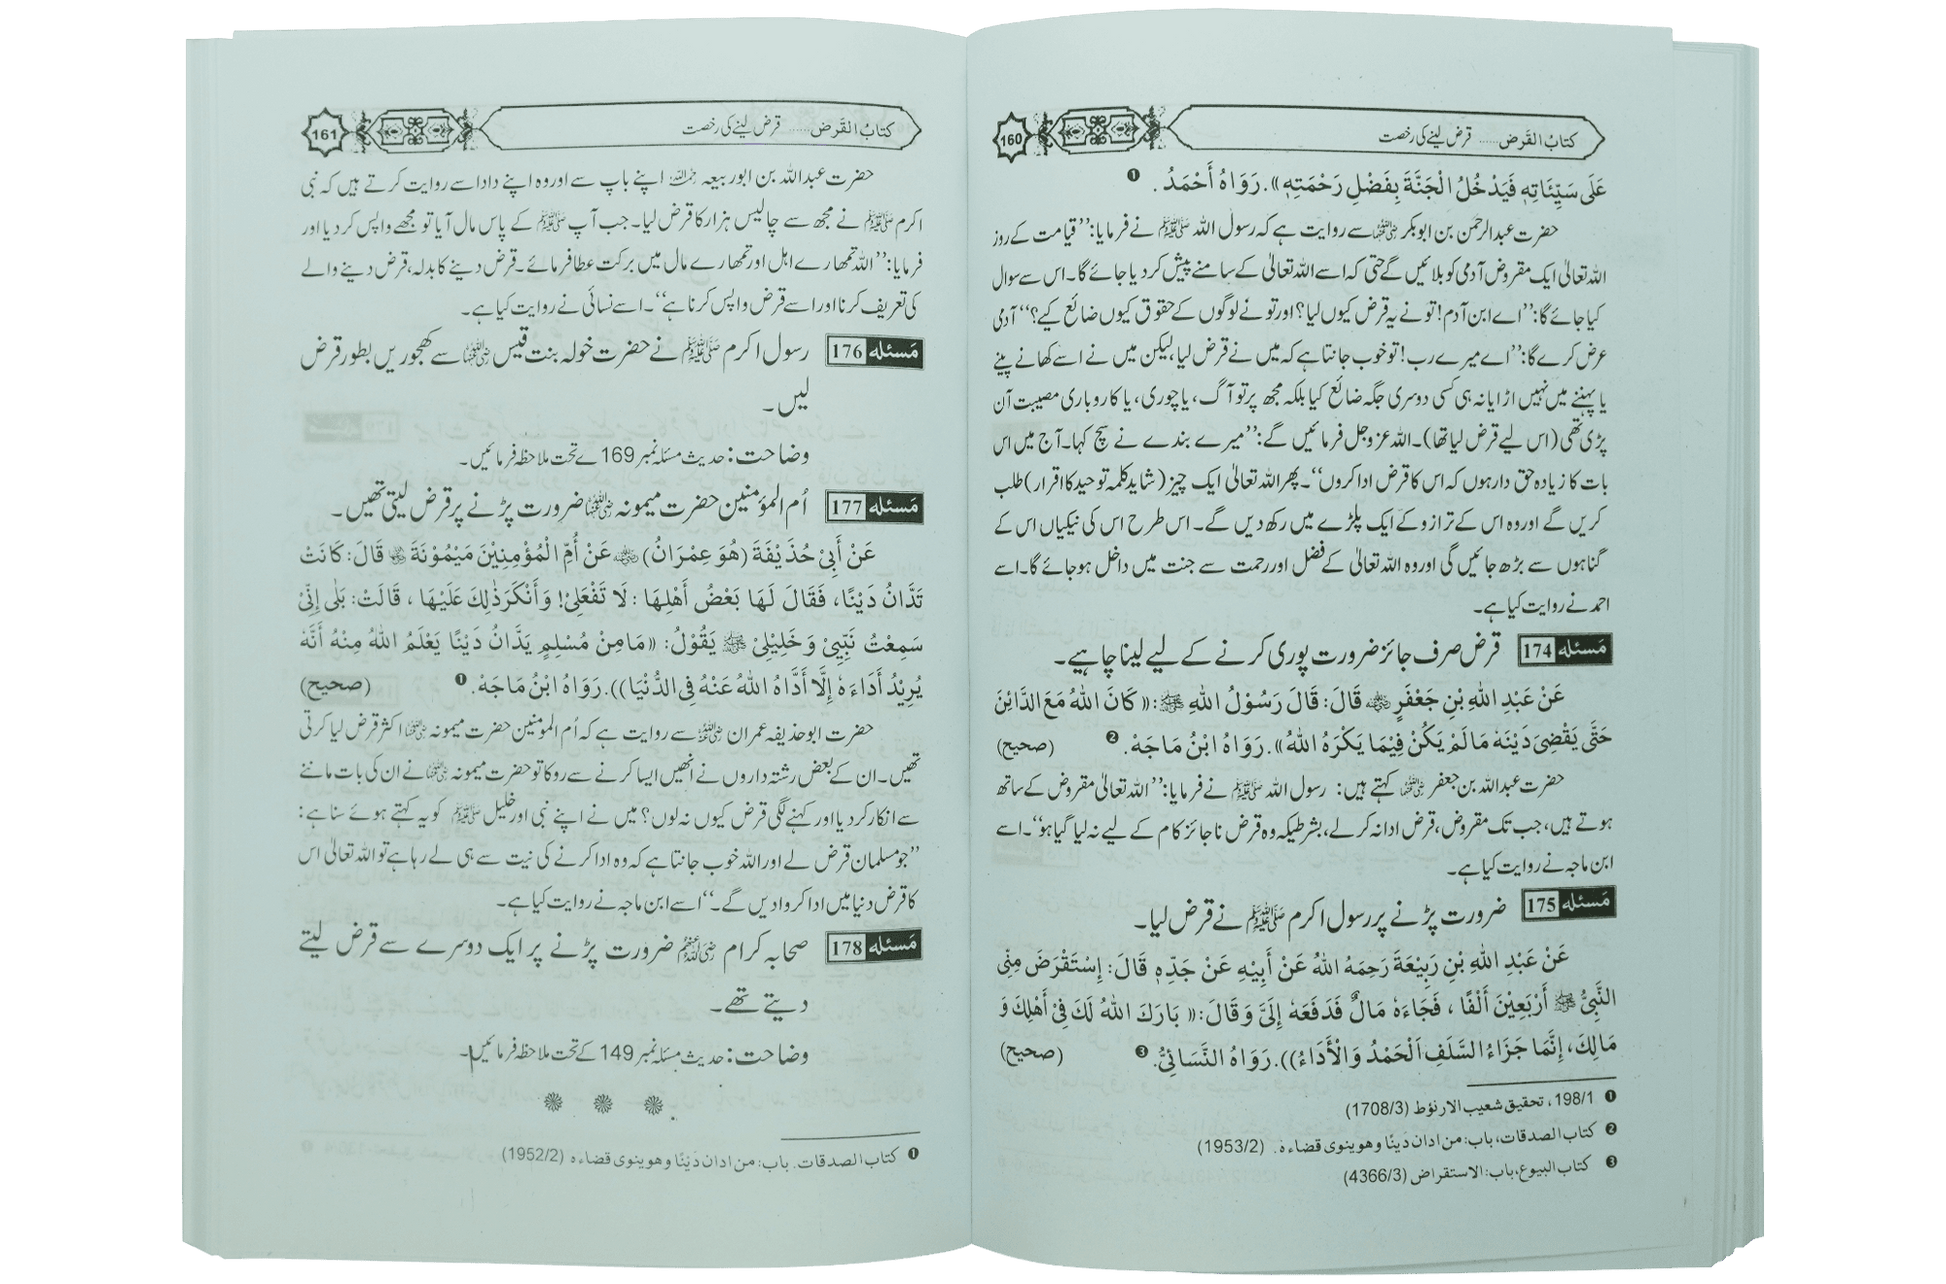 160
كتابُ القَرض ...... قرض لینے کی رخصت
عَلَى سَيِّئَاتِهٖ فَيَدْخُلُ الْجَنَّةَ بِفَضْلِ رَحْمَتِهٖ». رَوَاهُ أَحْمَدُ . ❶
حضرت عبدالرحمن بن ابوبکر رضی اللہ عنہما سے روایت ہے کہ رسول اللہ ﷺ نے فرمایا: ’’قیامت کے روز
اللہ تعالیٰ ایک مقروض آدمی کو بلائیں گے حتی کہ اسے اللہ تعالیٰ کے سامنے پیش کر دیا جائے گا۔ اس سے سوال
کیا جائے گا: ’’اے ابن آدم! تو نے یہ قرض کیوں لیا؟ اور تو نے لوگوں کے حقوق کیوں ضائع کیے؟‘‘ آدمی
عرض کرے گا: ’’اے میرے رب! تو خوب جانتا ہے کہ میں نے قرض لیا، لیکن میں نے اسے کھانے پینے
یا پہننے میں نہیں اڑایا نہ ہی کسی دوسری جگہ ضائع کیا بلکہ مجھ پر تو آگ، یا چوری، یا کاروباری مصیبت آن
پڑی تھی (اس لیے قرض لیا تھا)۔ اللہ عزوجل فرمائیں گے: ’’میرے بندے نے سچ کہا۔ آج میں اس
بات کا زیادہ حق دار ہوں کہ اس کا قرض ادا کروں‘‘۔ پھر اللہ تعالیٰ ایک چیز (شاید کلمہ توحید کا اقرار) طلب
کریں گے اور وہ اس کے ترازو کے ایک پلڑے میں رکھ دیں گے۔ اس طرح اس کی نیکیاں اس کے
گناہوں سے بڑھ جائیں گی اور وہ اللہ تعالیٰ کے فضل اور رحمت سے جنت میں داخل ہو جائے گا۔ اسے
احمد نے روایت کیا ہے۔
مَسئله 174 قرض صرف جائز ضرورت پوری کرنے کے لیے لینا چاہیے۔
عَنْ عَبْدِ اللهِ بْنِ جَعْفَرٍ ؓ قَالَ: قَالَ رَسُوْلُ اللهِ ﷺ: « كَانَ اللهُ مَعَ الدَّائِنَ
حَتَّى يَقْضِىَ دَيْنَهٗ مَا لَمْ يَكُنْ فِيْمَا يَكْرَهُ اللهُ». رَوَاهُ ابْنُ مَاجَهْ. ❷ (صحيح)
حضرت عبداللہ بن جعفر رضی اللہ عنہما کہتے ہیں: رسول اللہ ﷺ نے فرمایا: ’’اللہ تعالیٰ مقروض کے ساتھ
ہوتے ہیں، جب تک مقروض، قرض ادا نہ کر لے، بشرطیکہ وہ قرض ناجائز کام کے لیے نہ لیا گیا ہو‘‘۔ اسے
ابن ماجہ نے روایت کیا ہے۔
مَسئله 175 ضرورت پڑنے پر رسول اکرم ﷺ نے قرض لیا۔
عَنْ عَبْدِ اللهِ بْنِ رَبِيْعَةَ رَحِمَهُ اللهُ عَنْ أَبِيْهِ عَنْ جَدِّهٖ قَالَ: إِسْتَقْرَضَ مِنِّى
النَّبِىُّ ﷺ أَرْبَعِيْنَ أَلْفًا ، فَجَاءَهٗ مَالٌ فَدَفَعَهٗ إِلَىَّ وَقَالَ: « بَارَكَ اللهُ لَكَ فِىْ أَهْلِكَ وَ
مَالِكَ، إِنَّمَا جَزَاءُ السَّلَفِ اَلْحَمْدُ وَالْأَدَاءُ)). رَوَاهُ النَّسَائِىُّ. ❸ (صحيح)
❶ 198/1، تحقیق شعیب الارنؤط (1708/3)
❷ كتاب الصدقات، باب: من ادان دَينًا وهو ينوى قضاءه. (1953/2)
❸ كتاب البيوع، باب: الاستقراض (4366/3)
161
كتابُ القَرض ...... قرض لینے کی رخصت
حضرت عبداللہ بن ابو ربیعہ رحمہ اللہ اپنے باپ سے اور وہ اپنے دادا سے روایت کرتے ہیں کہ نبی
اکرم ﷺ نے مجھ سے چالیس ہزار کا قرض لیا۔ جب آپ ﷺ کے پاس مال آیا تو مجھے واپس کر دیا اور
فرمایا: ’’اللہ تمھارے اہل اور تمھارے مال میں برکت عطا فرمائے۔ قرض دینے کا بدلہ، قرض دینے والے
کی تعریف کرنا اور اسے قرض واپس کرنا ہے‘‘۔ اسے نسائی نے روایت کیا ہے۔
مَسئله 176 رسول اکرم ﷺ نے حضرت خولہ بنت قیس رضی اللہ عنہا سے کھجوریں بطور قرض
لیں۔
وضاحت: حدیث مسئلہ نمبر 169 ے تحت ملاحظہ فرمائیں۔
مَسئله 177 اُم المؤمنین حضرت میمونہ رضی اللہ عنہا ضرورت پڑنے پر قرض لیتی تھیں۔
عَنْ أَبِىْ حُذَيْفَةَ (هُوَ عِمْرَانُ) ؓ عَنْ أُمِّ الْمُؤْمِنِيْنَ مَيْمُوْنَةَ ؓ قَالَ: كَانَتْ
تَدَّانُ دَيْنًا، فَقَالَ لَهَا بَعْضُ أَهْلِهَا : لَا تَفْعَلِىْ! وَأَنْكَرَ ذٰلِكَ عَلَيْهَا ، قَالَتْ: بَلٰى إِنِّىْ
سَمِعْتُ نَبِّيِىْ وَخَلِيْلِىْ ﷺ يَقُوْلُ: «مَا مِنْ مُسْلِمٍ يَدَّانُ دَيْنًا يَعْلَمُ اللهُ مِنْهُ أَنَّهٗ
يُرِيْدُ أَدَاءَهٗ إِلَّا أَدَّاهُ اللهُ عَنْهُ فِى الدُّنْيَا)). رَوَاهُ ابْنُ مَاجَهْ. ❶ (صحيح)
حضرت ابو حذیفہ عمران رضی اللہ عنہ سے روایت ہے کہ اُم المؤمنین حضرت میمونہ رضی اللہ عنہا اکثر قرض لیا کرتی
تھیں۔ ان کے بعض رشتہ داروں نے انھیں ایسا کرنے سے روکا تو حضرت میمونہ رضی اللہ عنہا نے ان کی بات ماننے
سے انکار کر دیا اور کہنے لگی قرض کیوں نہ لوں؟ میں نے اپنے نبی اور خلیل ﷺ کو یہ کہتے ہوئے سنا ہے:
’’جو مسلمان قرض لے اور اللہ خوب جانتا ہے کہ وہ ادا کرنے کی نیت سے ہی لے رہا ہے تو اللہ تعالیٰ اس
کا قرض دنیا میں ادا کروا دیں گے۔‘‘ اسے ابن ماجہ نے روایت کیا ہے۔
مَسئله 178 صحابہ کرام رضی اللہ عنہم ضرورت پڑنے پر ایک دوسرے سے قرض لیتے
دیتے تھے۔
وضاحت: حدیث مسئلہ نمبر 149 کے تحت ملاحظہ فرمائیں۔
❶ كتاب الصدقات. باب: من ادان دَيْنًا وهو ينوى قضاءه (1952/2)